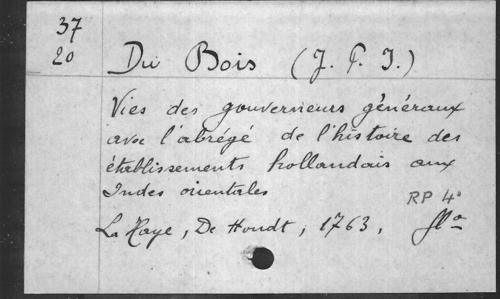 37
20
Du Bois (J. F. I.)
Vies des gouverneurs généraux
avec l'abrégé de l'histoire des
établissements hollandais aux
Indes orientales
RP 4°
La Haye, De Hondt, 1763,